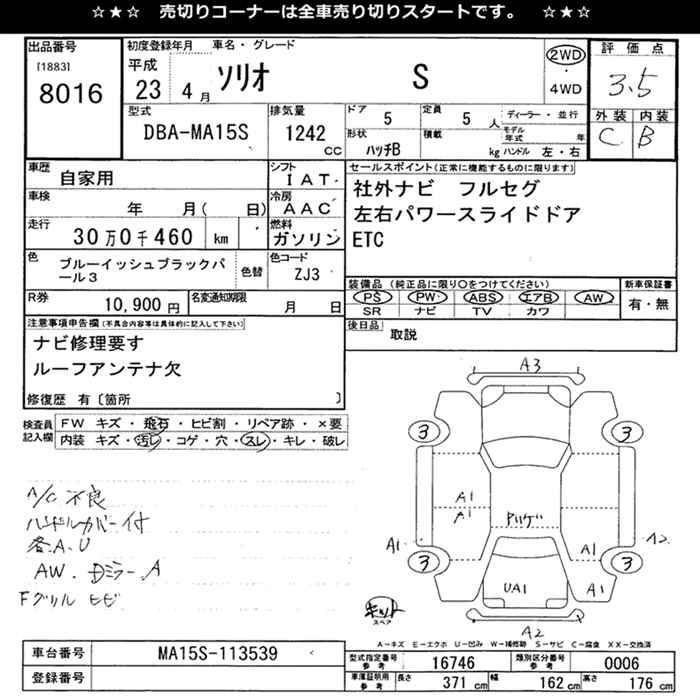 ☆★☆ 売切りコーナーは全車売り切りスタートです。 ☆★☆
出品番号
[1883]
8016
初度登録年月
平成
23 4月
車名・グレード
ソリオ S
2WD
・
4WD
評価点
3.5
外装 内装
C B
型式
DBA-MA15S
排気量
1242
CC
ドア
5
定員
5人
ディーラー・並行
形状
ハッチB
積載
kg
モデル年式 年
ハンドル 左・右
車歴
自家用
シフト
IAT
車検
年 月( 日)
冷房
AAC
走行
30万0千460 km
燃料
ガソリン
色
ブルーイッシュブラックパール3
色替
色コード
ZJ3
R券
10,900円
名変通知期限
月 日
セールスポイント(正常に機能するものに限ります)
社外ナビ フルセグ
左右パワースライドドア
ETC
装備品(純正品に限り○をつけてください)
PS PW ABS エアB AW
SR ナビ TV カワ
新車保証書
有・無
後日品
取説
注意事項申告欄(不具合内容等は具体的に記入して下さい)
ナビ修理要す
ルーフアンテナ欠
修復歴 有〔箇所 〕
検査員記入欄
FW キズ・飛石・ヒビ割・リペア跡・×要
内装 キズ・汚レ・コゲ・穴・スレ・キレ・破レ
A/C 不良
ハンドルカバー付
各A.U
AW.Dミラー.A
Fグリル ヒビ
A3
3
3
A1
A1
A1
A2
A1
3
3
UA1
A1
A2
キット
スペア
A-キズ E-エクボ U-凹み W-補修跡 S-サビ C-腐食 XX-交換済
車台番号
MA15S-113539
登録番号
型式指定番号
参考
16746
類別区分番号
参考
0006
車庫証明用
参考
長さ
371 cm
幅
162 cm
高さ
176 cm